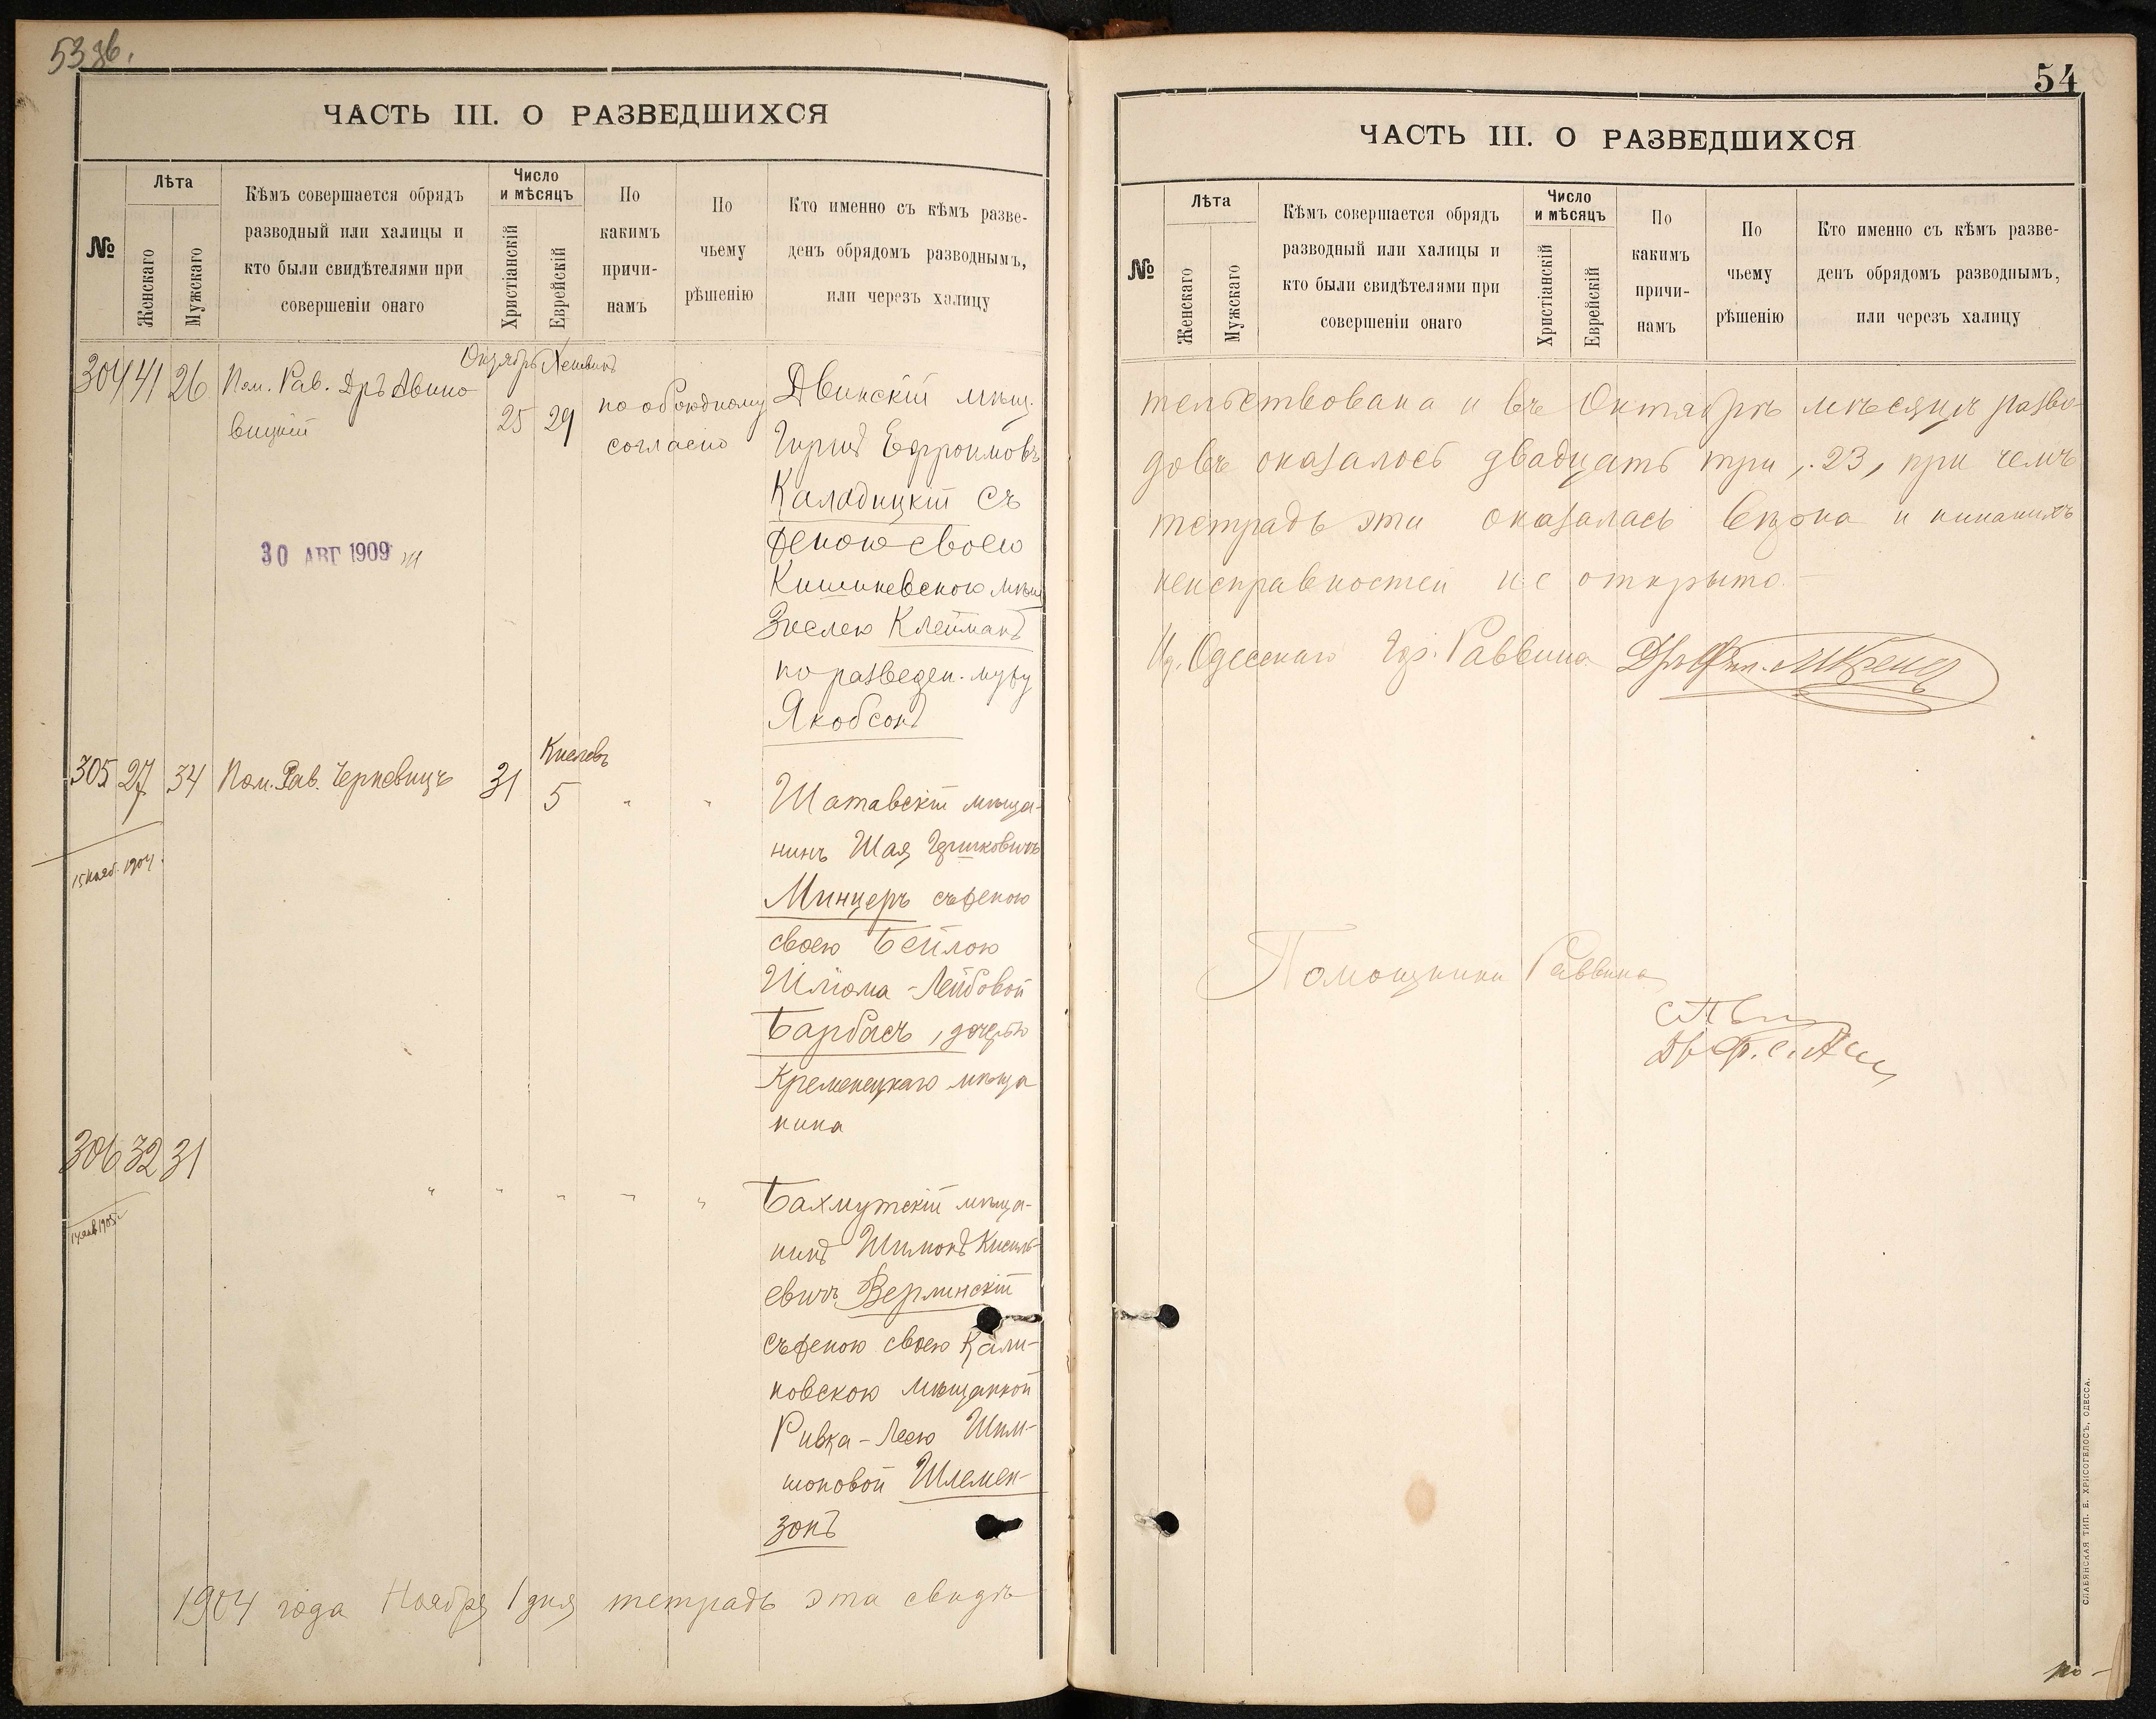 53 об.
ЧАСТЬ III. О РАЗВЕДШИХСЯ
№
Лѣта
Женскаго
Мужскаго
Кѣмъ совершается обрядъ
разводный или халицы и
кто были свидѣтелями при
совершеніи онаго
Число
и мѣсяцъ
Христіанскій
Еврейскій
По
какимъ
причи-
намъ
По
чьему
рѣшенію
Кто именно съ кѣмъ разве-
денъ обрядомъ разводнымъ,
или через халицу
Октябрь Хешванъ
304 41 26 Пом. Рав. Дръ Авино-
вицкій
25 29
по обоюдному
согласію
Двинскій мѣщ.
Гиршъ Ефроимовъ
Каладицкій съ
женою своею
Кишиневскою мѣщ.
Зислею Клейманъ
по разведен. мужу
Якобсонъ
30 АВГ 1909
Кислевъ
305 27 34 Пом. Рав. Черневицъ 31 5 " "
15 нояб. 1904
Шатавскій мѣща-
нинъ Шая Гершковичъ
Минцеръ съ женою
своею Бейлою
Шлёма-Лейбовой
Барбасъ, дочерью
Кременецкаго мѣща
нина
306 32 31 " " " " "
14 янв 1905 г
Бахмутскій мѣща-
нинъ Шимонъ Кисиль-
евичъ Верлинскій
съ женою своею Кали-
новскою мѣщанкой
Ривка-Леею Шим-
шоновой Шлемен-
зонъ
1904 года Ноября 1 дня тетрадь эта свидѣ-
54
ЧАСТЬ III. О РАЗВЕДШИХСЯ
№
Лѣта
Женскаго
Мужскаго
Кѣмъ совершается обрядъ
разводный или халицы и
кто были свидѣтелями при
совершеніи онаго
Число
и мѣсяцъ
Христіанскій
Еврейскій
По
какимъ
причи-
намъ
По
чьему
рѣшенію
Кто именно съ кѣмъ разве-
денъ обрядомъ разводнымъ,
или черезъ халицу
тельствована и въ Октябрѣ мѣсяцѣ разво-
довъ оказалось двадцать три, 23, при чемъ
тетрадь эта оказалась вѣрна и никакихъ
неисправностей не открыто.
И. д. Одесскаго Гор. Раввина Дръ Фил.
Помощники Раввина
СЛАВЯНСКАЯ ТИП. Е. ХРИСОГЕЛОСЪ, ОДЕССА.